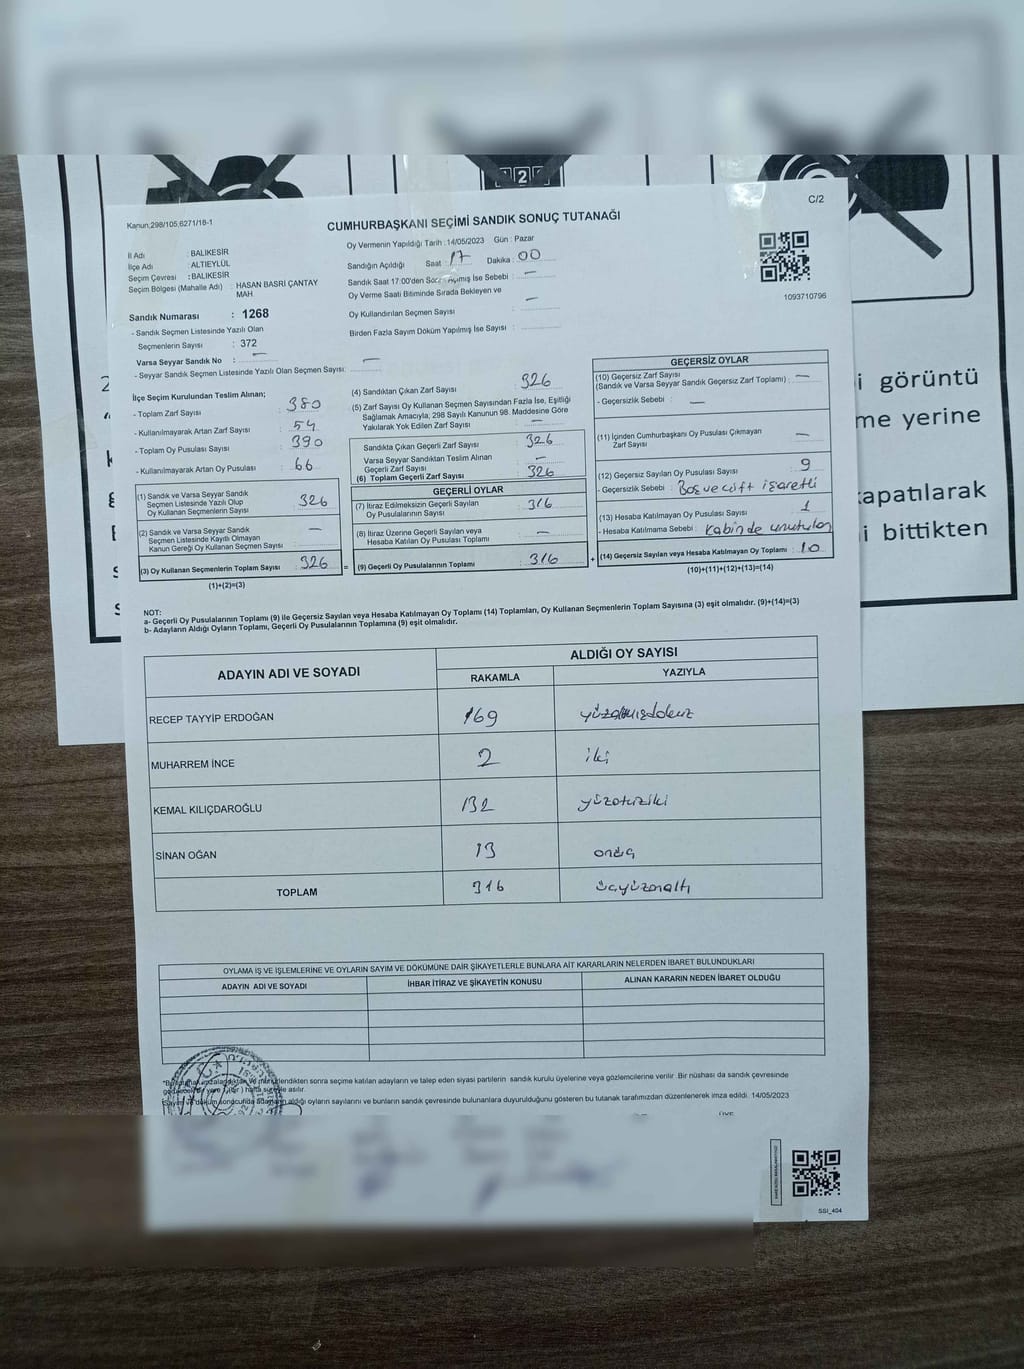 C/2
Kanun;298/105,6271/18-1
CUMHURBAŞKANI SEÇİMİ SANDIK SONUÇ TUTANAĞI
İl Adı : BALIKESİR
İlçe Adı : ALTIEYLÜL
Seçim Çevresi : BALIKESİR
Seçim Bölgesi (Mahalle Adı) : HASAN BASRİ ÇANTAY MAH.
Oy Vermenin Yapıldığı Tarih : 14/05/2023 Gün : Pazar
Sandığın Açıldığı Saat : 17 Dakika : 00
Sandık Saat 17:00'den Sonra Açılmış İse Sebebi : —
Oy Verme Saati Bitiminde Sırada Bekleyen ve
Oy Kullandırılan Seçmen Sayısı : —
Birden Fazla Sayım Döküm Yapılmış İse Sayısı :
1093710796
Sandık Numarası : 1268
- Sandık Seçmen Listesinde Yazılı Olan
Seçmenlerin Sayısı : 372
Varsa Seyyar Sandık No : —
- Seyyar Sandık Seçmen Listesinde Yazılı Olan Seçmen Sayısı: —
İlçe Seçim Kurulundan Teslim Alınan;
- Toplam Zarf Sayısı : 380
- Kullanılmayarak Artan Zarf Sayısı : 54
- Toplam Oy Pusulası Sayısı : 390
- Kullanılmayarak Artan Oy Pusulası : 66
(1) Sandık ve Varsa Seyyar Sandık
Seçmen Listesinde Yazılı Olup
Oy Kullanan Seçmenlerin Sayısı 326
(2) Sandık ve Varsa Seyyar Sandık
Seçmen Listesinde Kayıtlı Olmayan
Kanun Gereği Oy Kullanan Seçmen Sayısı —
(3) Oy Kullanan Seçmenlerin Toplam Sayısı 326 =
(1)+(2)=(3)
(4) Sandıktan Çıkan Zarf Sayısı 326
(5) Zarf Sayısı Oy Kullanan Seçmen Sayısından Fazla İse, Eşitliği
Sağlamak Amacıyla; 298 Sayılı Kanunun 98. Maddesine Göre
Yakılarak Yok Edilen Zarf Sayısı —
Sandıkta Çıkan Geçerli Zarf Sayısı 326
Varsa Seyyar Sandıktan Teslim Alınan
Geçerli Zarf Sayısı —
(6) Toplam Geçerli Zarf Sayısı 326
GEÇERLİ OYLAR
(7) İtiraz Edilmeksizin Geçerli Sayılan
Oy Pusulalarının Sayısı 316
(8) İtiraz Üzerine Geçerli Sayılan veya
Hesaba Katılan Oy Pusulası Toplamı —
(9) Geçerli Oy Pusulalarının Toplamı 316 +
GEÇERSİZ OYLAR
(10) Geçersiz Zarf Sayısı
(Sandık ve Varsa Seyyar Sandık Geçersiz Zarf Toplamı) : —
- Geçersizlik Sebebi : —
(11) İçinden Cumhurbaşkanı Oy Pusulası Çıkmayan
Zarf Sayısı —
(12) Geçersiz Sayılan Oy Pusulası Sayısı 9
- Geçersizlik Sebebi : Boş ve çift işaretli
(13) Hesaba Katılmayan Oy Pusulası Sayısı 1
- Hesaba Katılmama Sebebi : Kabinde unutulan
(14) Geçersiz Sayılan veya Hesaba Katılmayan Oy Toplamı : 10
(10)+(11)+(12)+(13)=(14)
NOT:
a- Geçerli Oy Pusulalarının Toplamı (9) ile Geçersiz Sayılan veya Hesaba Katılmayan Oy Toplamı (14) Toplamları, Oy Kullanan Seçmenlerin Toplam Sayısına (3) eşit olmalıdır. (9)+(14)=(3)
b- Adayların Aldığı Oyların Toplamı, Geçerli Oy Pusulalarının Toplamına (9) eşit olmalıdır.
ADAYIN ADI VE SOYADI ALDIĞI OY SAYISI
RAKAMLA YAZIYLA
RECEP TAYYİP ERDOĞAN 169
MUHARREM İNCE 2 iki
KEMAL KILIÇDAROĞLU 132 yüzotuziki
SİNAN OĞAN 13 onüç
TOPLAM 316 üçyüzonaltı
OYLAMA İŞ VE İŞLEMLERİNE VE OYLARIN SAYIM VE DÖKÜMÜNE DAİR ŞİKAYETLERLE BUNLARA AİT KARARLARIN NELERDEN İBARET BULUNDUKLARI
ADAYIN ADI VE SOYADI İHBAR İTİRAZ VE ŞİKAYETİN KONUSU ALINAN KARARIN NEDEN İBARET OLDUĞU
sonra seçime katılan adayların ve talep eden siyasi partilerin sandık kurulu üyelerine veya gözlemcilerine verilir. Bir nüshası da sandık çevresinde
hafta süreyle asılır.
Sayım ve döküm sonucunda adayların aldığı oyların sayılarını ve bunların sandık çevresinde bulunanlara duyurulduğunu gösteren bu tutanak tarafımızdan düzenlenerek imza edildi. 14/05/2023
ÜYE
SSİ_404
2
i görüntü
me yerine
kapatılarak
i bittikten